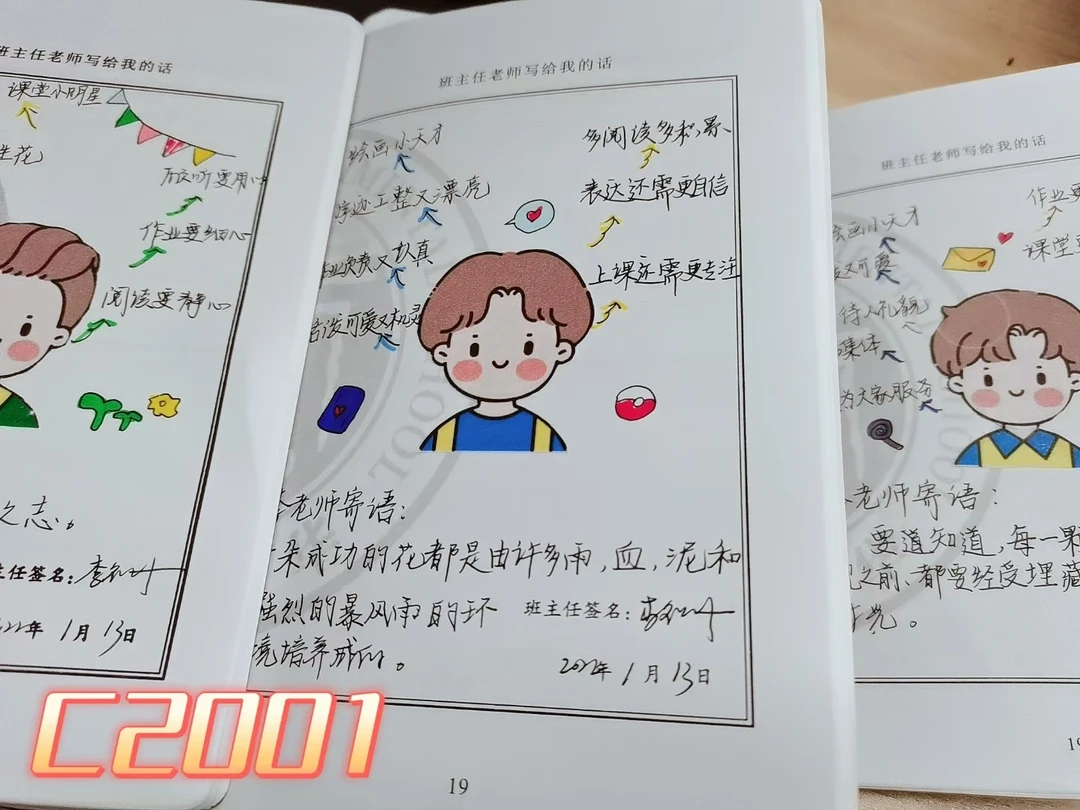 班主任老师写给我的话
课堂小明星
生花
作业要细心
阅读要静心
之志。
主任签名:
1月13日
班主任老师写给我的话
绘画小天才
字迹工整又漂亮
业负责又认真
活泼可爱又机灵
多阅读多积累
表达还需更自信
上课还需更专注
李老师寄语:
一朵成功的花都是由许多雨,血,泥和
强烈的暴风雨的环
境培养成的。
班主任签名:
2022年1月13日
19
班主任老师写给我的话
绘画小天才
泼又可爱
待人礼貌
集体
为大家服务
作业要
课堂要
老师寄语:
要道知道,每一颗
之前、都要经受埋藏
光。
19
C2001